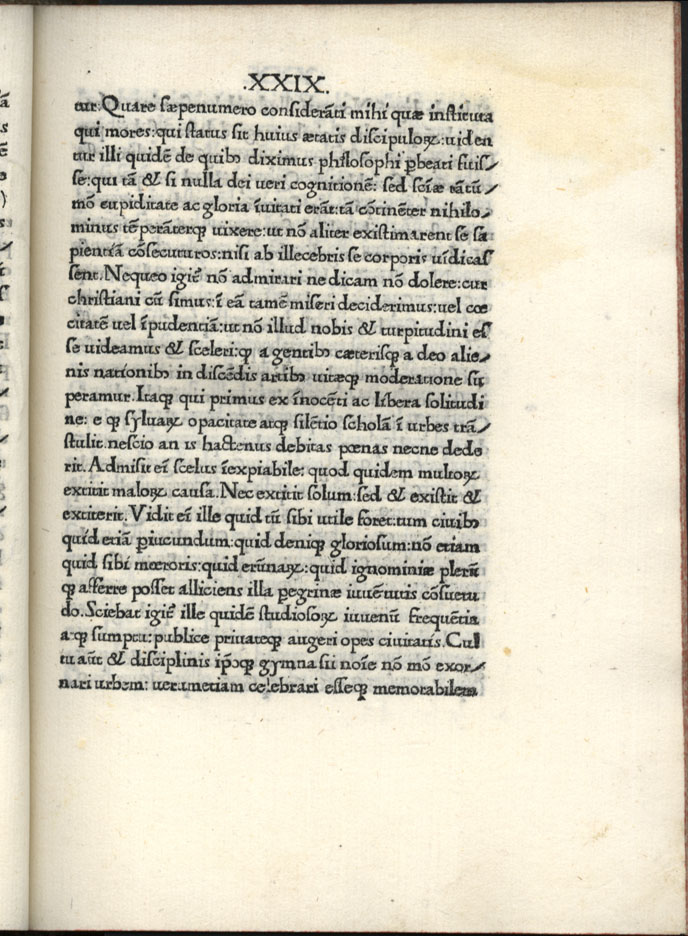 .XXIX.
tur. Quare sæpenumero considerāti mihi quæ instituta
qui mores: qui status sit huius ætatis discipuloꝝ: uiden
tur illi quidē de quibꝰ diximus philosophi ꝓbeati fuis⸗
se: qui tā & si nulla dei ueri cognitionē: sed sciæ tātū⸗
mō cupiditate ac gloria īuitati erāt: tā cōtinēter nihilo⸗
minus tēperāterqꝫ uixere: ut nō aliter existimarent se sa
pientiā cōsecuturos: nisi ab illecebris se corporis uīdicas
sent. Nequeo igit᷑ nō admirari ne dicam nō dolere: cur
christiani cū simus: ī eā tamē miseri deciderimus: uel cœ
citatē uel īpudentiā: ut nō illud nobis & turpitudini es⸗
se uideamus & sceleri: qꝫ a gentibꝰ cæterisqꝫ a deo alie⸗
nis nationibꝰ in discēdis artibꝰ uitæqꝫ moderatione su
peramur. Itaqꝫ qui primus ex īnocēti ac libera solitudi
ne: e qꝫ syluaꝝ opacitate atqꝫ silētio scholā ī urbes trā⸗
stulit. nescio an is hactenus debitas pœnas necne dede
rit. Admisit ei᷑ scelus īexpiabile: quod quidem multoꝝ
extitit maloꝝ causa. Nec extitit solum: sed & existit &
extiterit. Vidit ei᷑ ille quid tū sibi utile foret: tum ciuibꝰ
quid etiā ꝑiucundum: quid deniqꝫ gloriosum: nō etiam
quid sibi mœroris: quid erūnaꝝ: quid ignominiæ plerū
qꝫ afferre posset alliciens illa ꝑegrinæ iuuētutis cōsuetu
do. Sciebat igit᷑ ille quidē studiosoꝝ iuuenū frequētia
atqꝫ sumptu: publice priuateqꝫ augeri opes ciuitatis. Cul
tu aūt & disciplinis ip̄oqꝫ gymnasii noīe nō mō exor⸗
nari urbem: uerumetiam celebrari esseqꝫ memorabilem